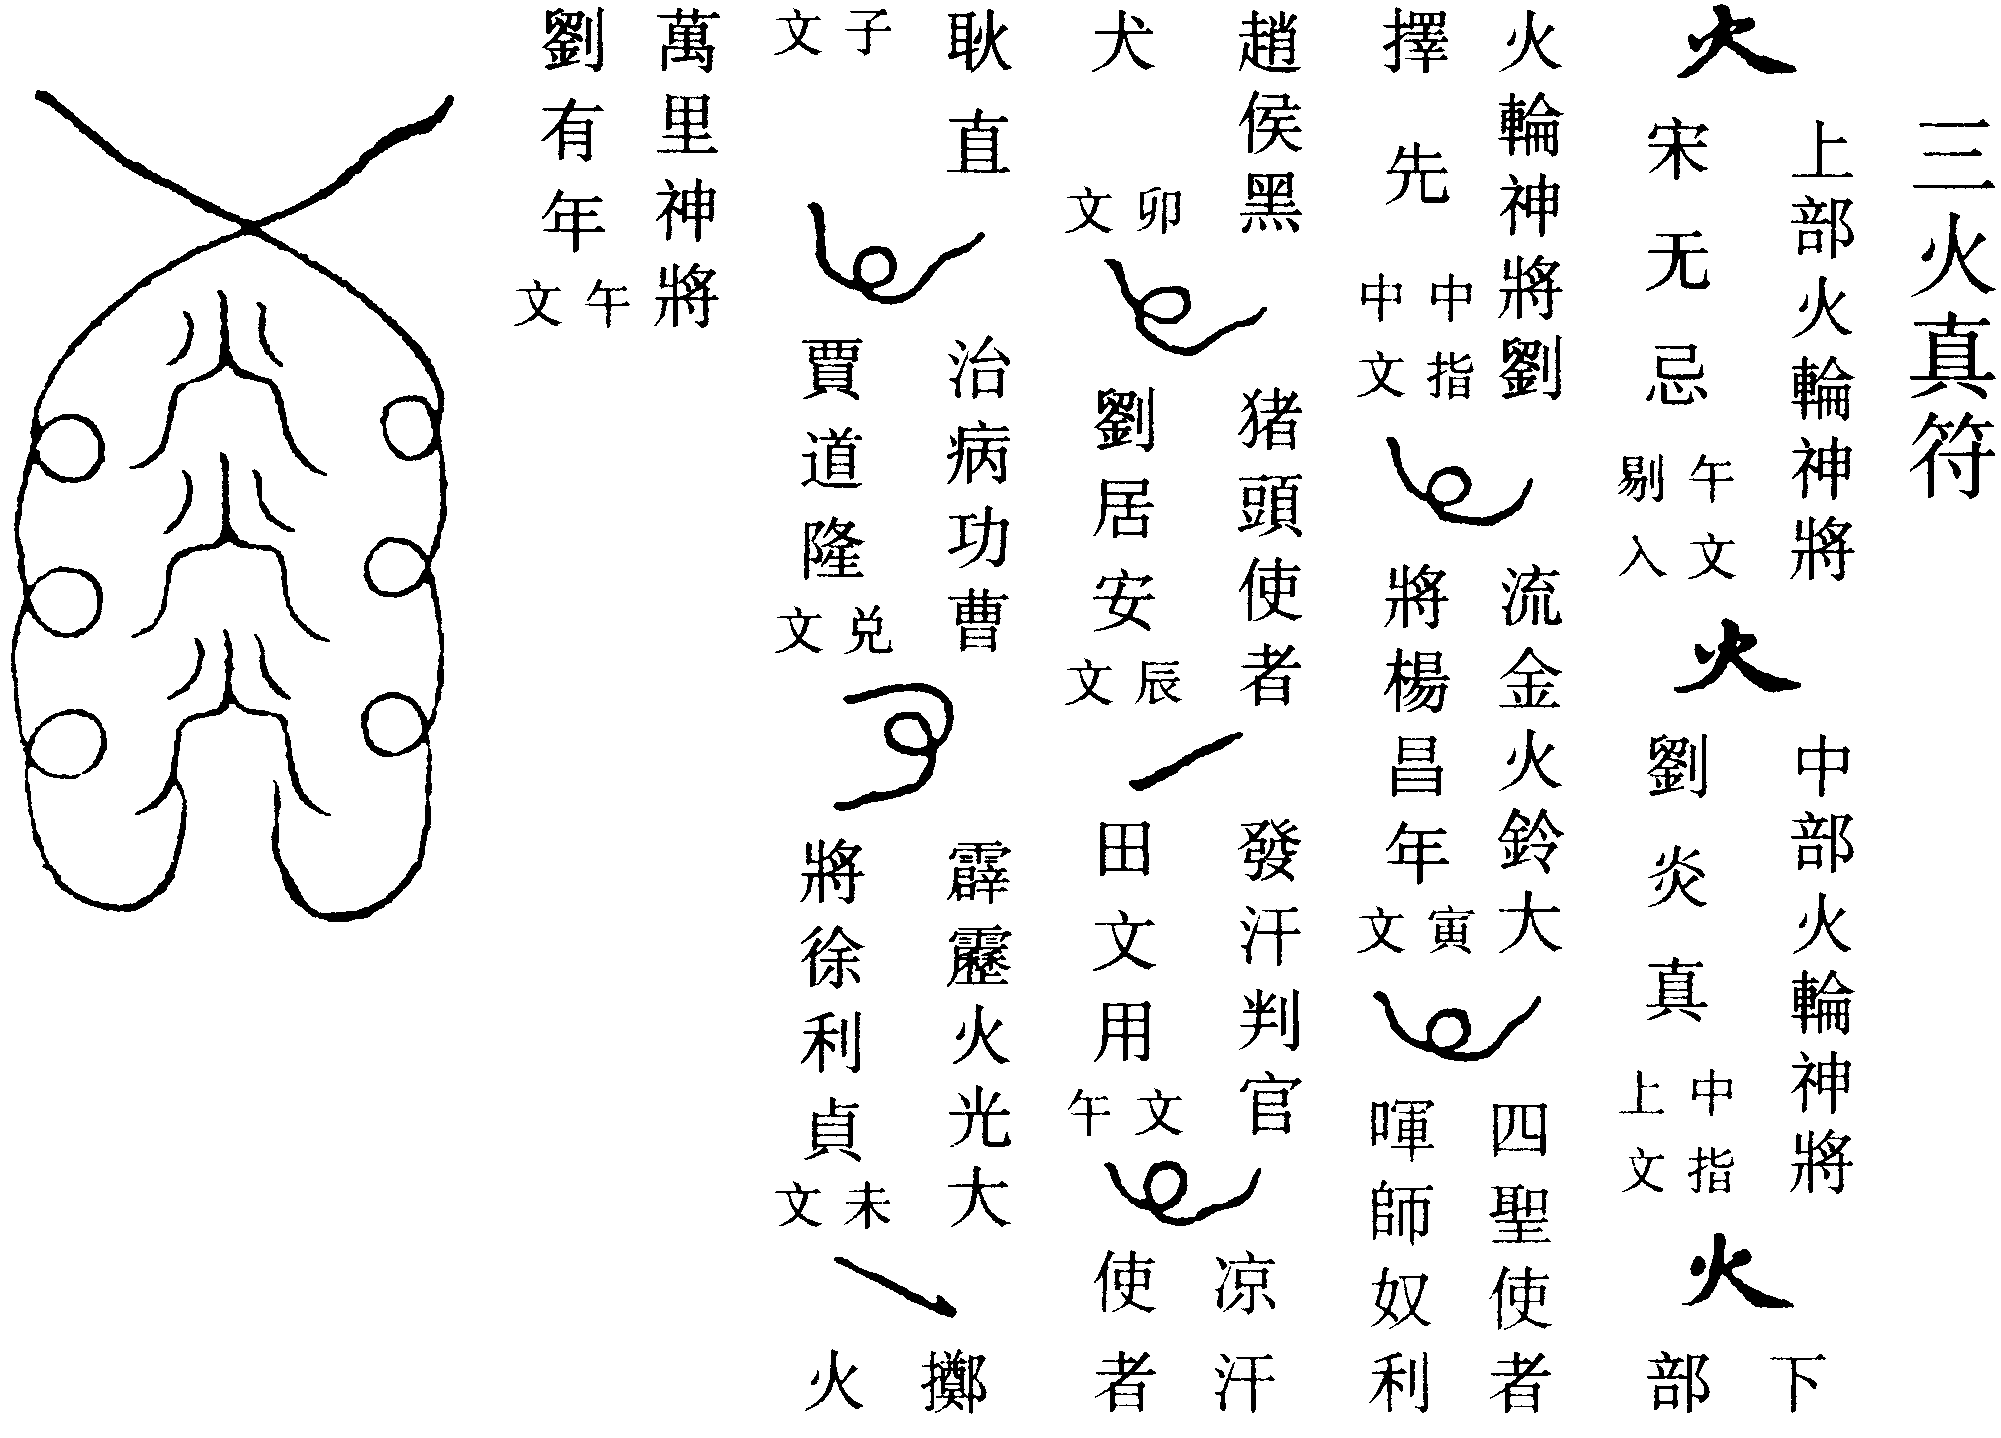 三火真符
火
上部火輪神將
宋无忌
午文
剔入
火
中部火輪神將
劉炎真
中指
上文
火
下
部
火輪神將劉
擇先
中指
中文
流金火鈴大
將楊昌年
寅
文
四聖使者
喗師奴利
趙侯黑
犬
卯
文
猪頭使者
劉居安
辰
文
發汗判官
田文用
文
午
凉汗
使者
耿直
子
文
治病功曹
賈道隆
兑
文
霹靂火光大
將徐利貞
未
文
擲
火
萬里神將
劉有年
午
文